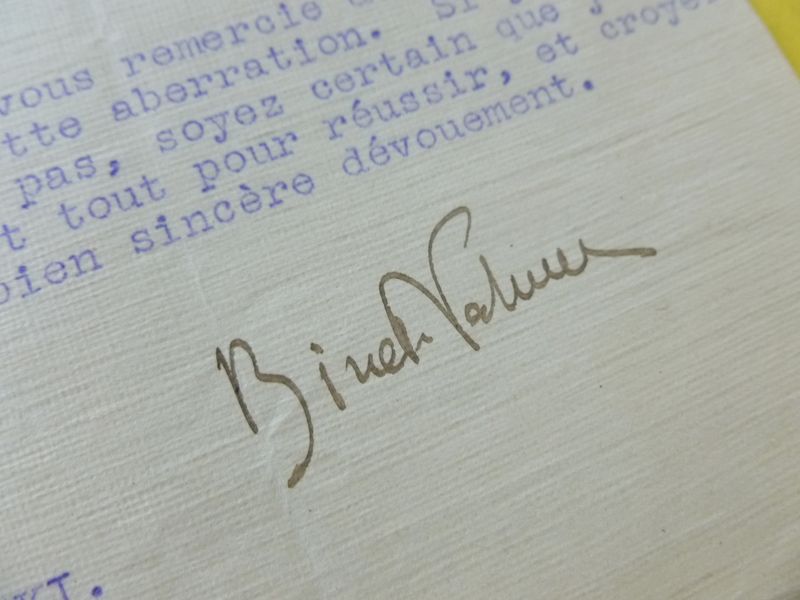 vous remercie
tte aberration. Si
pas, soyez certain que
t tout pour réussir, et croyez
bien sincère dévouement.
Binet-Valmer